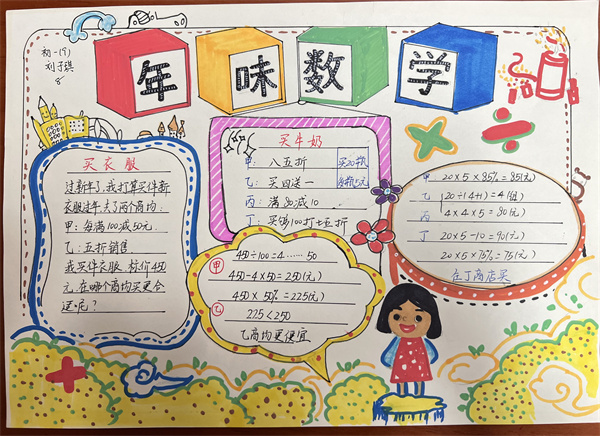 初一(7)
刘子琪
8
年味数学
买衣服
过新年了,我打算买件新
衣服过年,去了两个商场:
甲:每满100减50元.
乙:五折销售.
我买件衣服,标价450
元,在哪个商场买更合
适呢?
买牛奶
甲:八五折
乙:买四送一
丙:满80减10
丁:买够100打七五折
买20瓶
每瓶5元
甲
450÷100=4……50
450-4×50=250(元)
450×50%=225(元)
乙
225<250
乙商场更便宜
甲:20×5×85%=85(元)
乙 20÷(4+1)=4(组)
丙 4×4×5=80(元)
丁 20×5-10=90(元)
20×5×75%=75(元)
在丁商店买